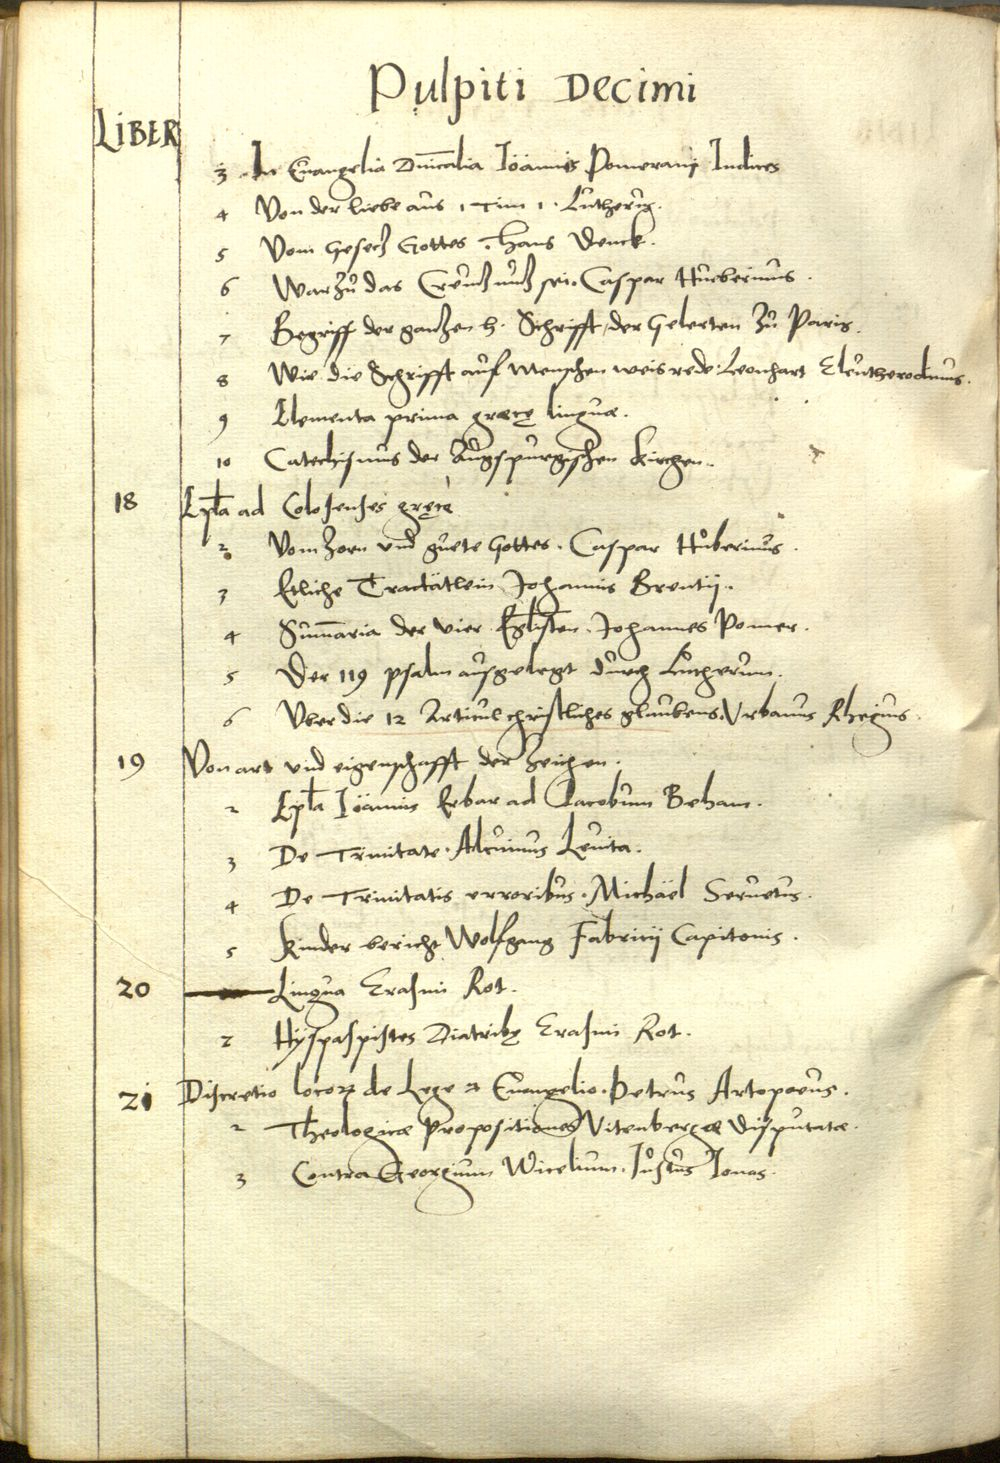 Pulpiti Decimi
LIBER
3 In Euangelia Dnicalia Ioannis Pomerani Indices
4 Von der liebe aus 1 Tim 1. Lutherus.
5 Vom Gesetz Gottes. Hans Denck.
6 Warzu das Creutz nutz sei. Caspar Huberinus.
7 Begriff der gantzen h. Schrifft, der Gelerten zu Paris.
8 Wie die Schrifft auf Menschen weis rede. Leonhart Eleutherobius.
9 Elementa prima græcę linguæ.
10 Catechismus der Augspurgischen Kirchen.
18 Epla ad Colosenses gręcè
2 Vom Zorn und guete Gottes. Caspar Huberinus.
3 Etliche Tractätlein Johannis Brentij.
4 Summaria der vier Johannes Pomer.
5 Der 119 psalm ausgelegt durch Lutherum.
6 Uber die 12 Articul christliches glaubens. Urbanus Rhegius.
19 Von art und eigenschafft der Zeichen.
2 Epla Ioannis Erbar ad Jacobum Beham.
3 De Trinitate. Alcuinus Leuita.
4 De Trinitatis erroribus. Michaël Seruetus.
5 Kinder bericht Wolfgang Fabricij Capitonis.
20 Lingua Erasmi Rot.
2 Hyspaspistes Diatribę Erasmi Rot.
21 Discretio locoꝝ de Lege et Euangelio. Petrus Artopoeus.
2 Theologicæ Propositiones Vitenbergæ Disputatæ.
3 Contra Georgium Wicelium. Iustus Ionas.